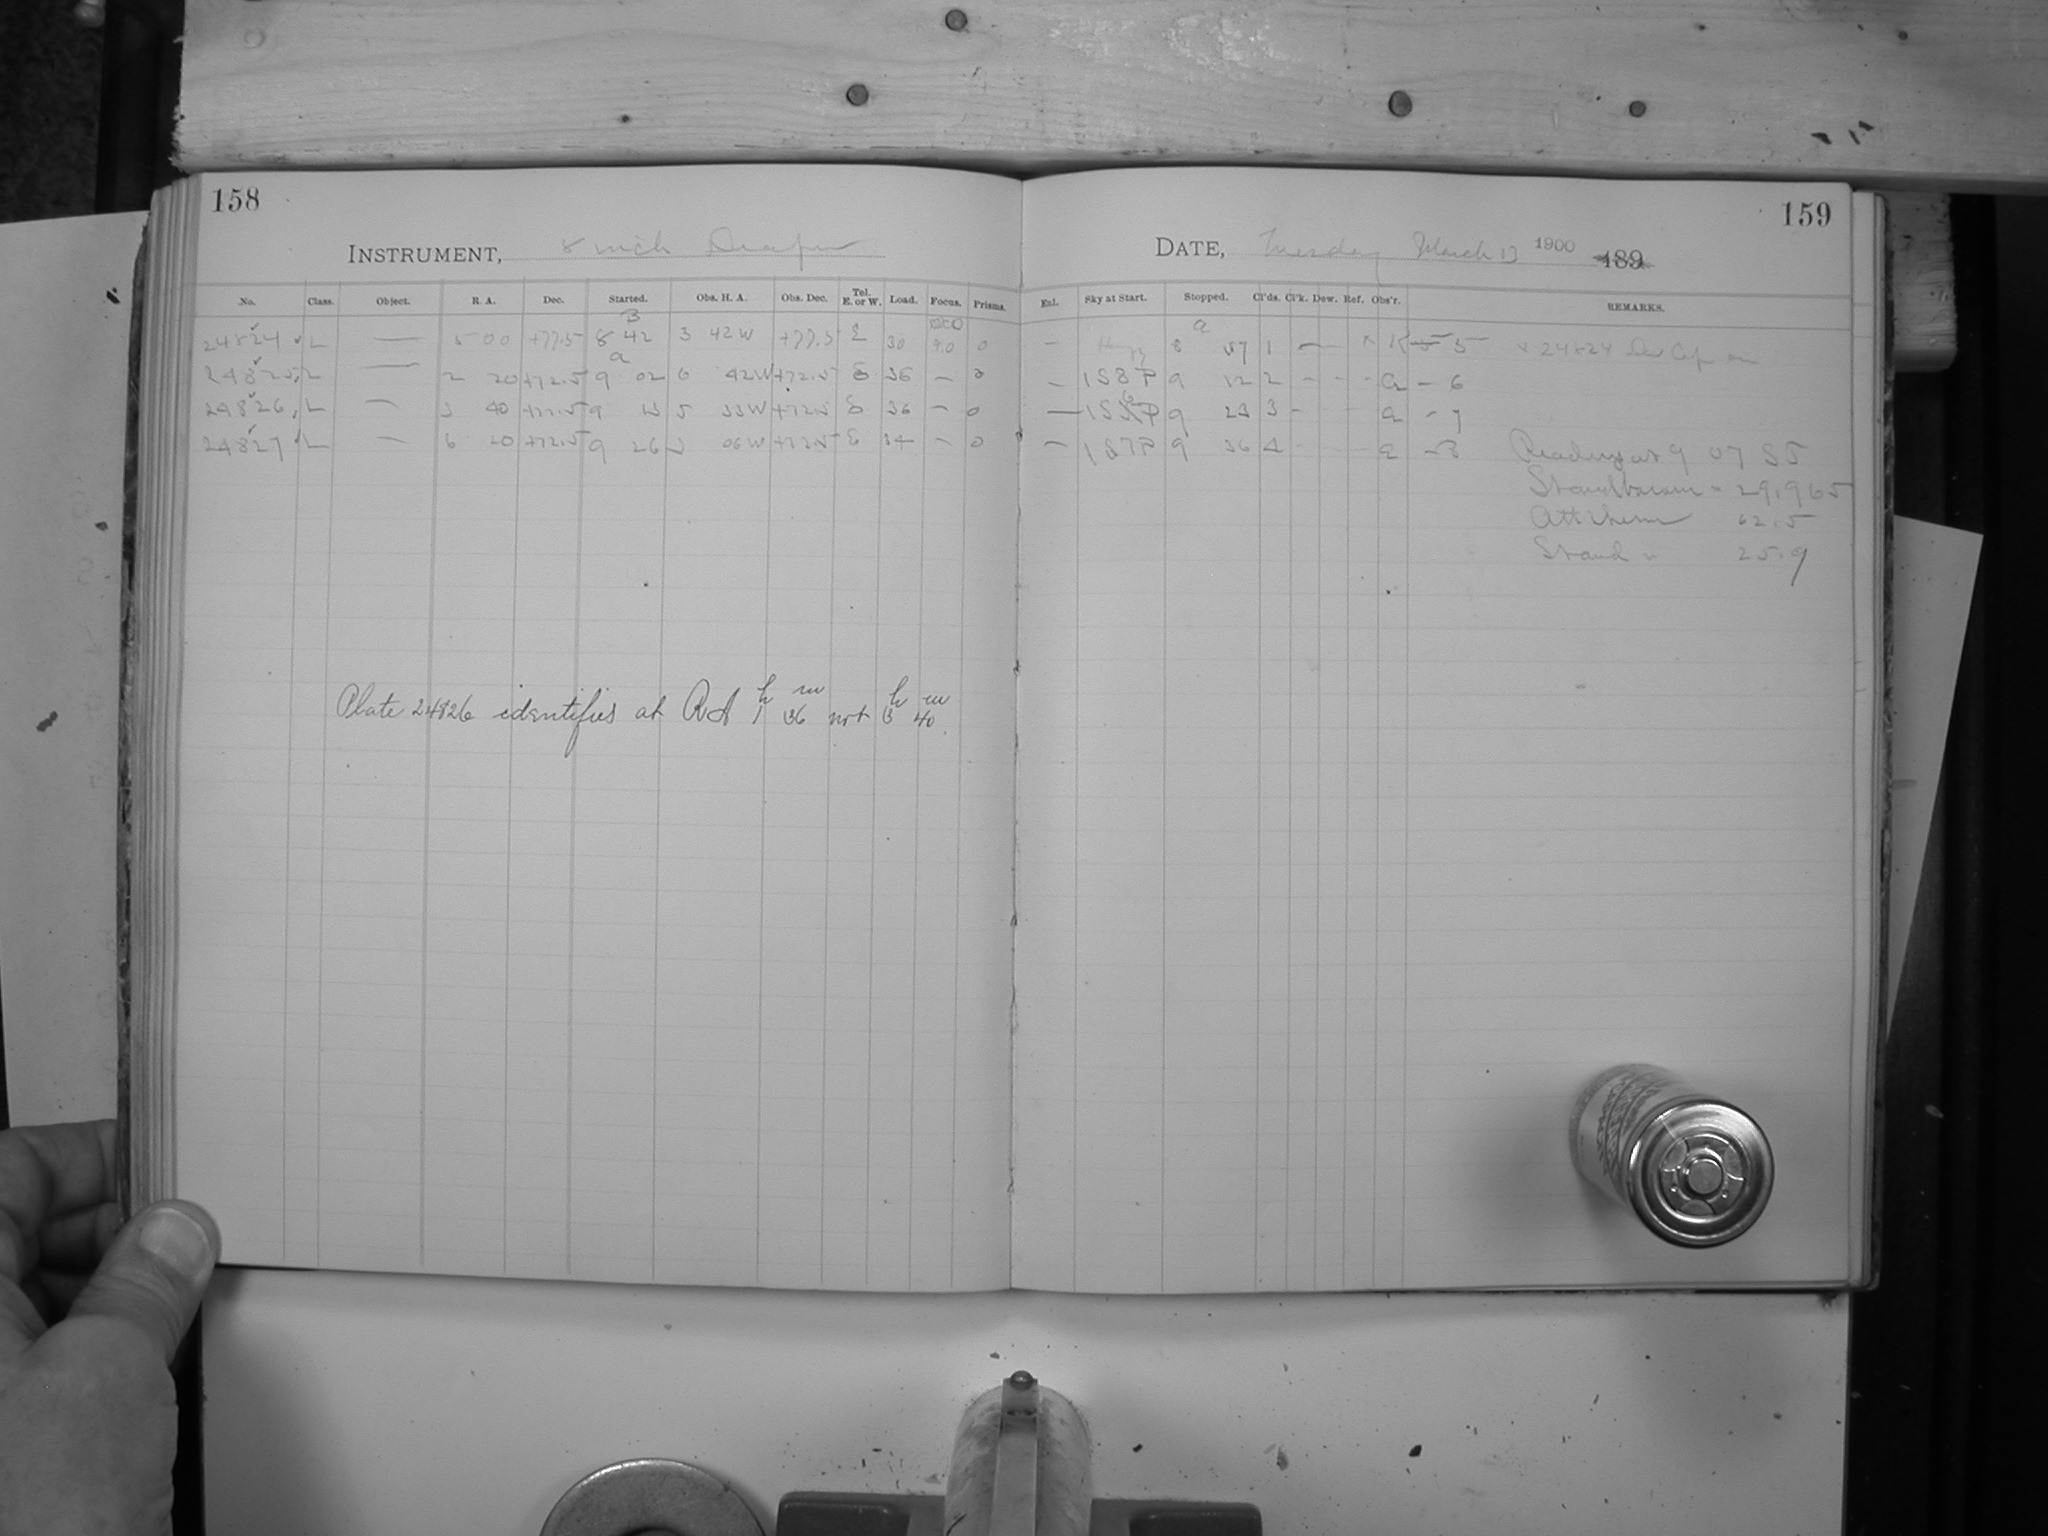 158
INSTRUMENT, 8 inch Draper
No. Class. Object. R. A. Dec. Started. Obs. H. A. Obs. Dec. Tel. E. or W. Load. Focus. Prisms.
24824 L — 5 00 +77.5 8 42 3 42 W +77.5 E 30 9.0 0
24825 L — 2 20 +72.5 9 02 6 42 W +72.5 E 36 — 0
24826 L — 3 40 +72.5 9 13 5 33 W +72.5 E 36 — 0
24827 L — 6 20 +72.5 9 26 3 06 W +72.5 E 34 — 0
Plate 24826 identifies at RA 1h 36m not 3h 40m.
159
DATE, Tuesday March 13 1900 189
Exl. Sky at Start. Stopped. Cl'ds. Cl'k. Dew. Ref. Obs'r. REMARKS.
— 8 57 1 — K 5 5 x 24824 Dew Cap on
— 1S8P 9 12 2 - - - a - 6
— 9 23 3 - a - 7
— 1S7P 9 36 4 a - 8 Readings at 9 07 ST
Standbarom = 29.965
Att therm 62.5
Stand " 25.9